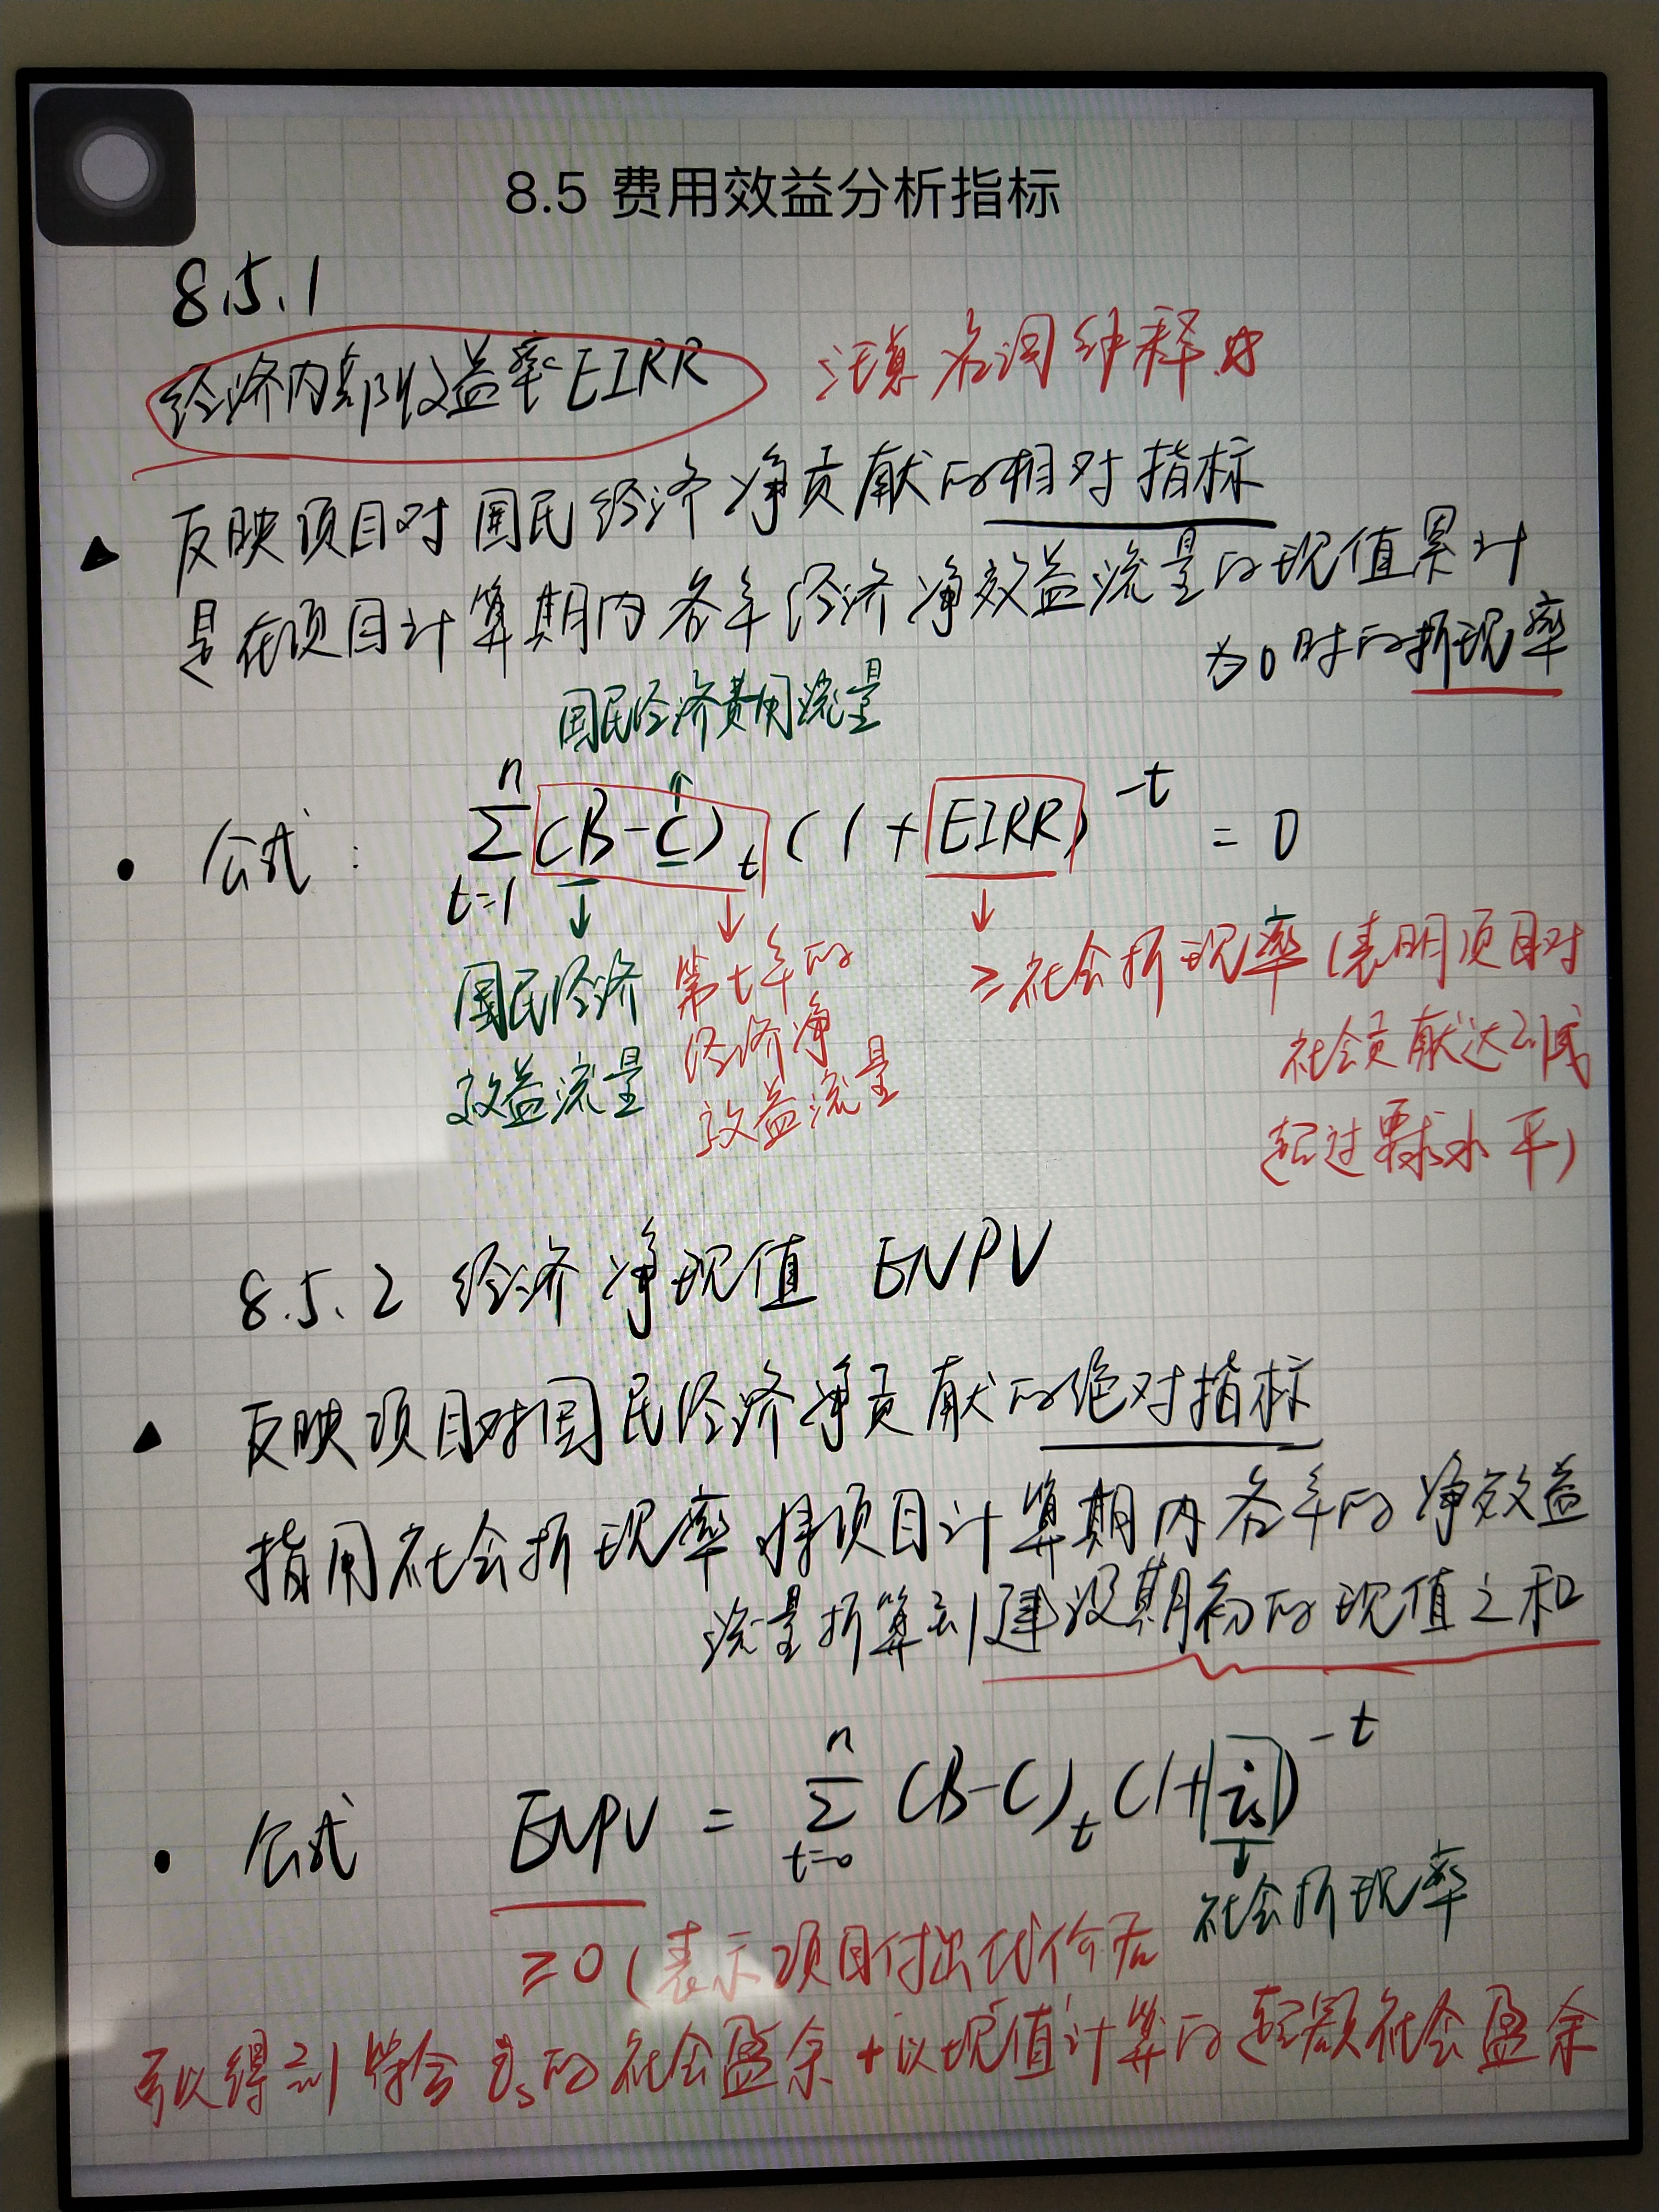 8.5 费用效益分析指标
8.5.1
经济内部收益率EIRR 注意名词解释
反映项目对国民经济净贡献的相对指标
是在项目计算期内各年经济净效益流量的现值累计
为0时的折现率
国民经济费用流量
公式: n Σ t=1 (B-C)t (1+EIRR)^-t = 0
国民经济
效益流量
第t年的
经济净
效益流量
≥社会折现率(表明项目对
社会贡献达到或
超过要求水平)
8.5.2 经济净现值 ENPV
反映项目对国民经济净贡献的绝对指标
指用社会折现率将项目计算期内各年的净效益
流量折算到建设期初的现值之和
公式 ENPV = n Σ t=0 (B-C)t (1+is)^-t
社会折现率
≥0(表示项目付出代价后
可以得到符合is的社会盈余+以现值计算的超额社会盈余